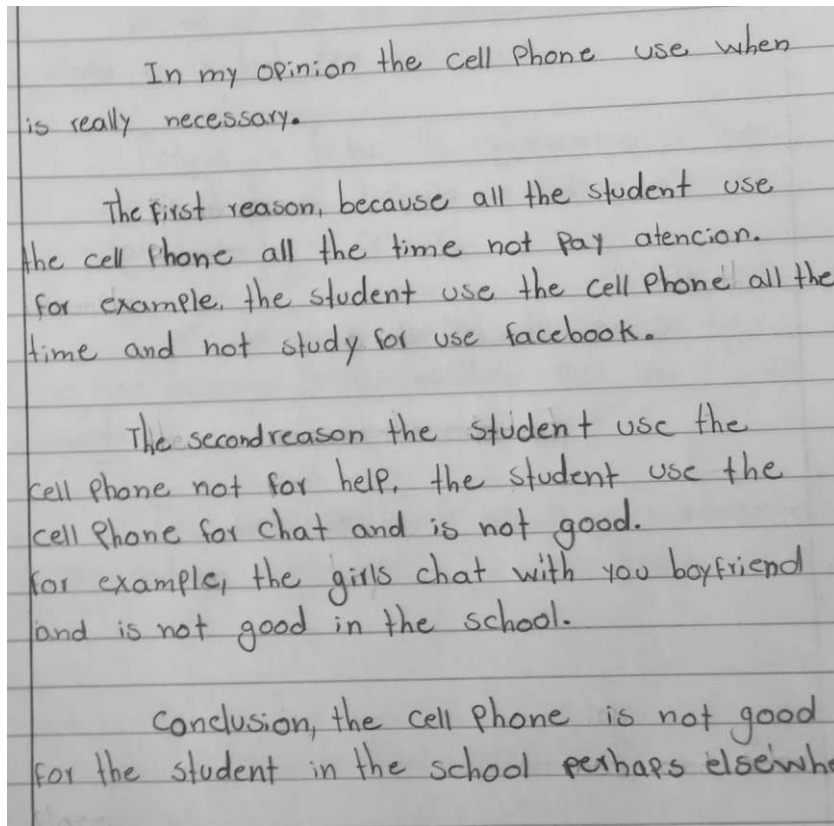 In my opinion the cell phone use when
is really necessary.
The first reason, because all the student use
the cell phone all the time not pay atencion.
for example, the student use the cell phone all the
time and not study for use facebook.
The second reason the student use the
cell phone not for help, the student use the
cell phone for chat and is not good.
for example, the girls chat with you boyfriend
and is not good in the school.
Conclusion, the cell phone is not good
for the student in the school perhaps elsewhe